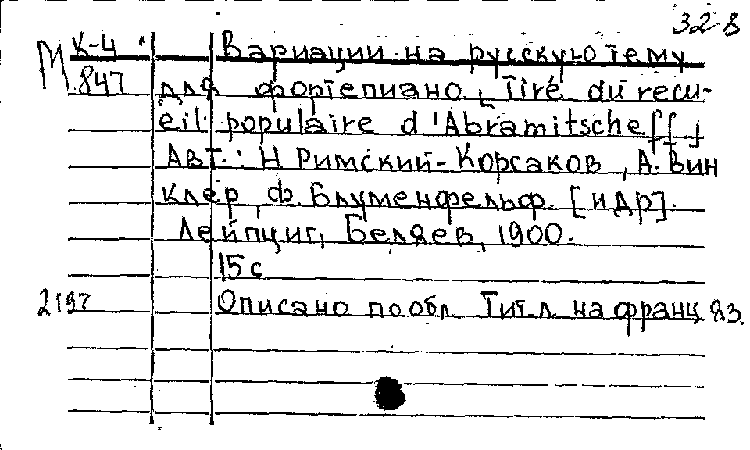 328
К-4 Вариации на русскую тему
М.847 для фортепиано [Tiré du recu-
eil populaire d'Abramitscheff]
Авт.: Н Римский-Корсаков, А. Вин
клер, Ф. Блуменфельф. [и др].
Лейпциг, Беляев, 1900.
15 с
2197 Описано по обл Тит.л на франц яз.